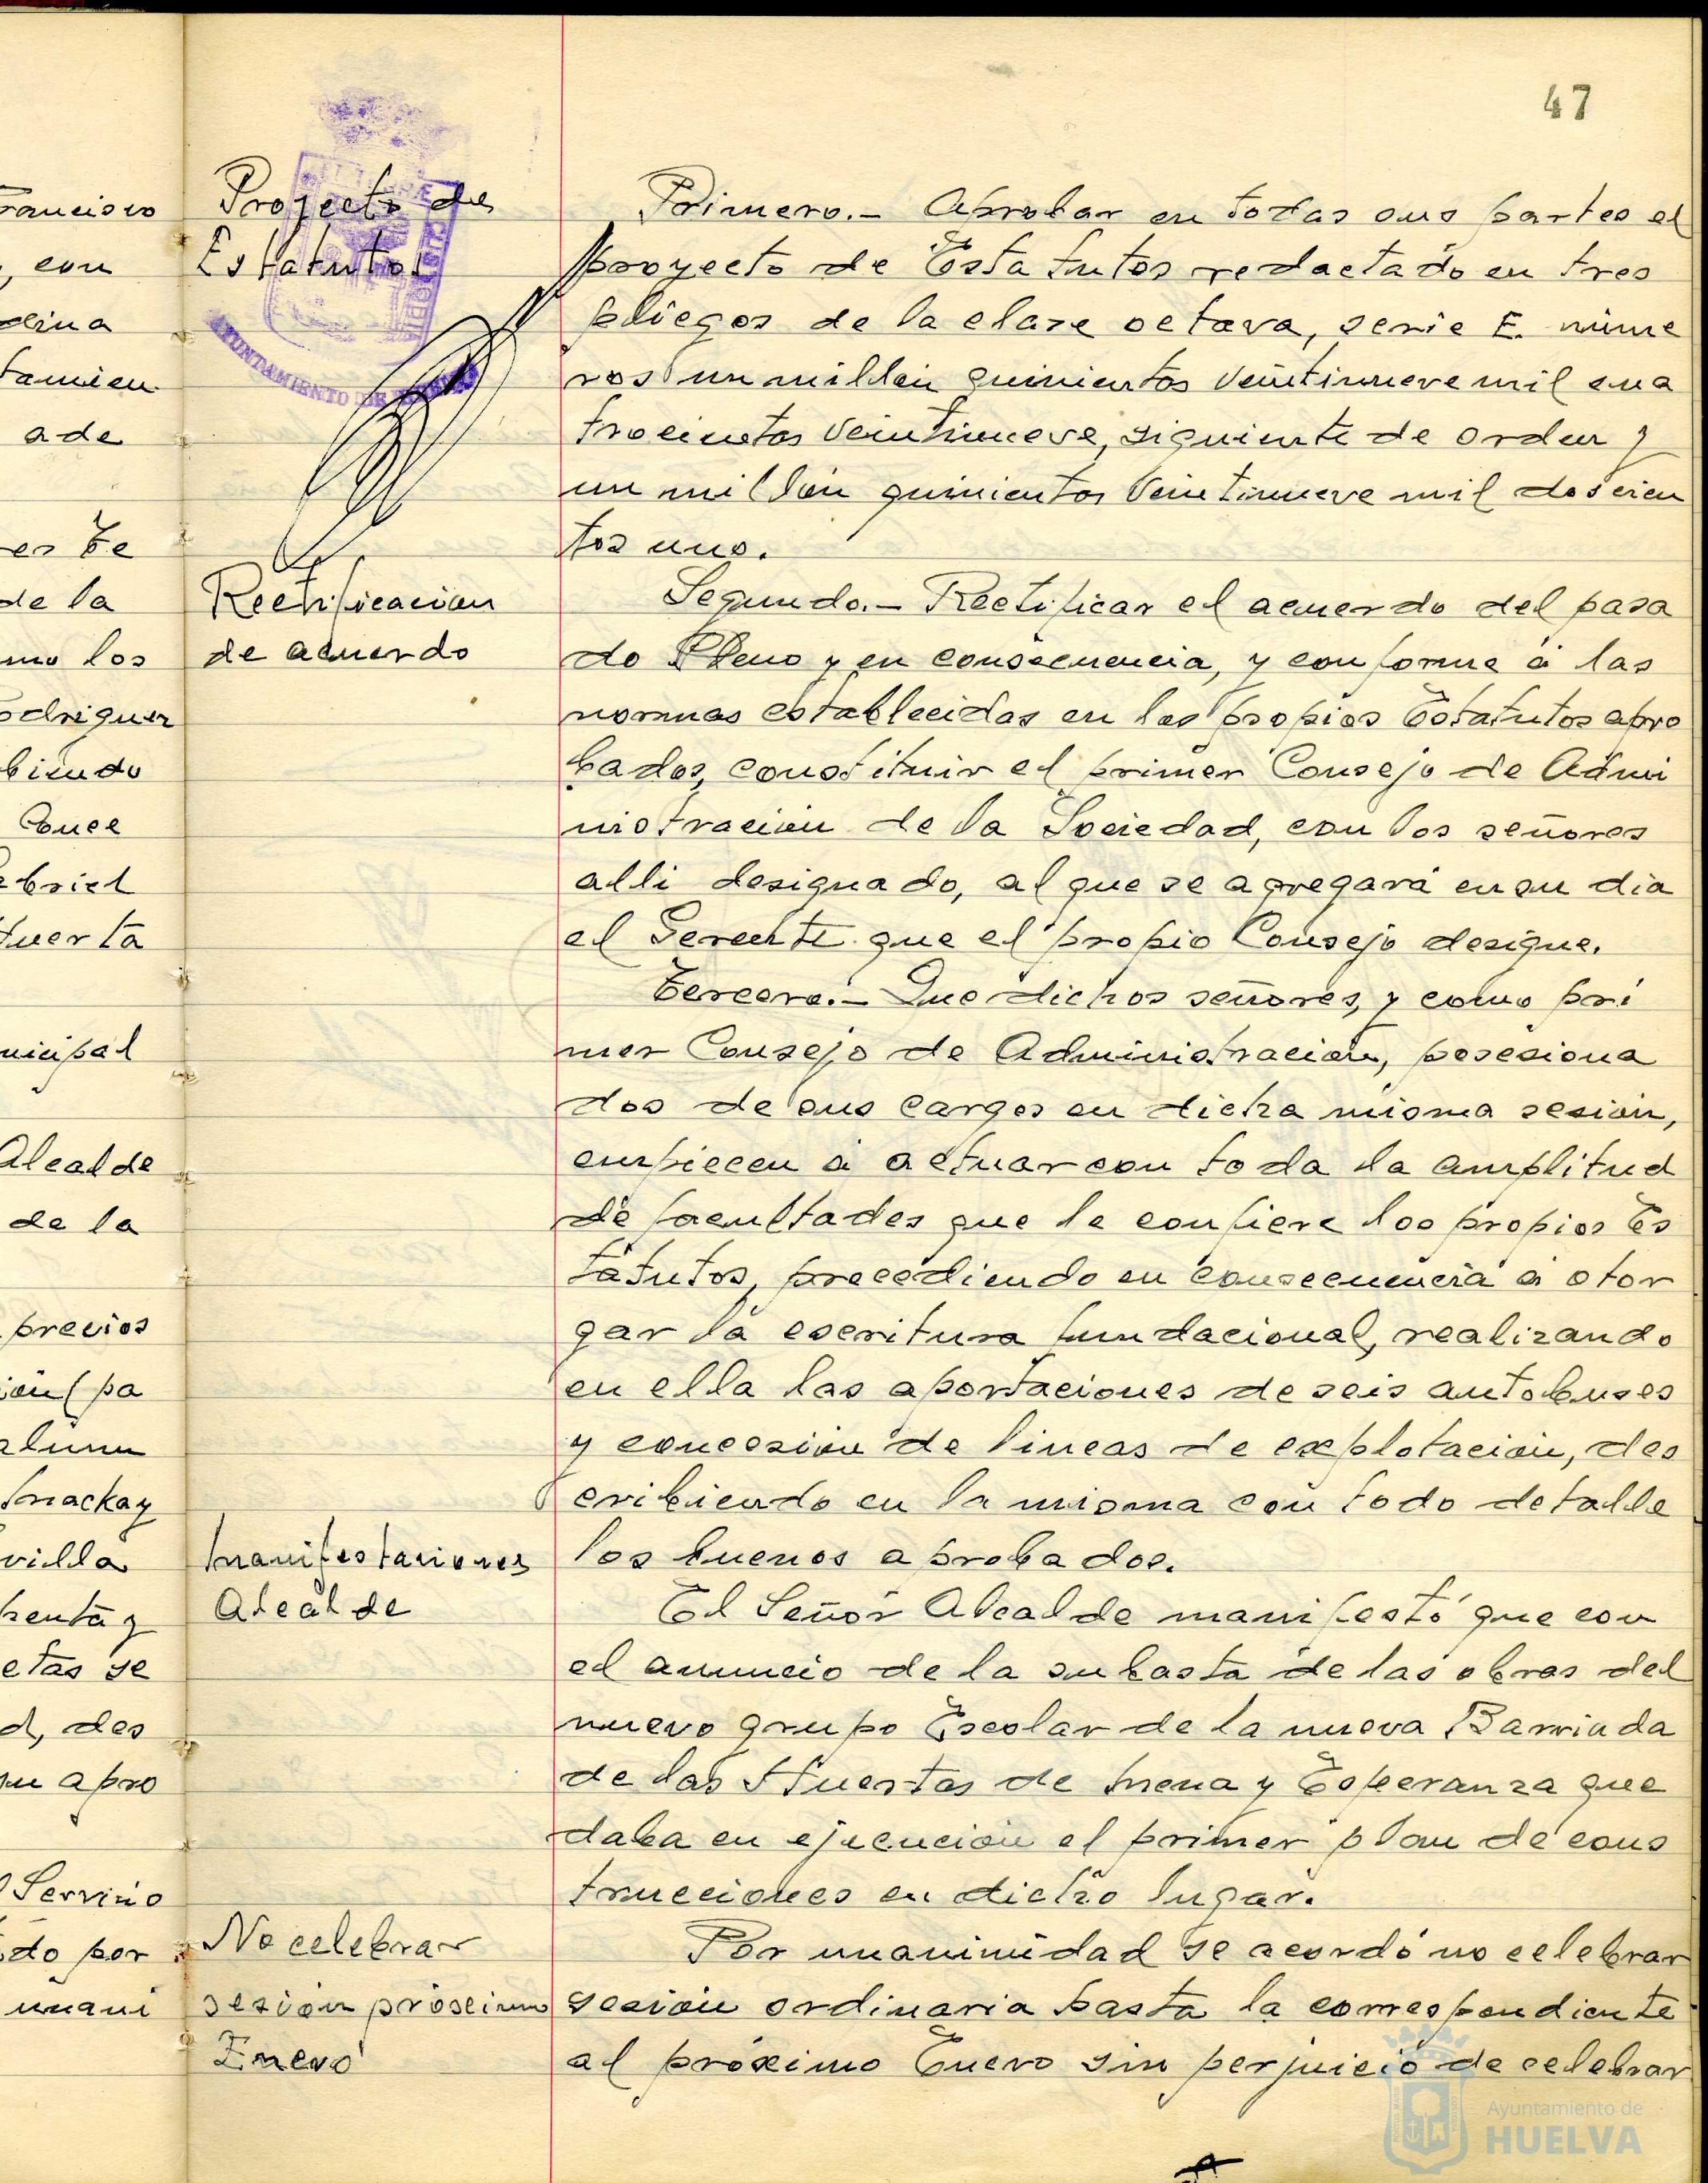 47
Francisco
, con
dina
tamien
a de
es Te
de la
mo los
odriguez
biendo
Conce
abriel
Huerta
nicipal
Alcalde
de la
previos
ion (pa
alum
Mackay
villa
henta y
etas se
d, des
su apro
Servicio
do por
unani
Proyecto de
Estatutos
AYUNTAMIENTO DE
Primero.- Aprobar en todas sus partes el
proyecto de Estatutos redactado en tres
pliegos de la clase octava, serie E. núme
ros un millón quinientos veintinueve mil cua
trocientos veintinueve, siguiente de orden y
un millón quinientos veintinueve mil doscien
tos uno.
Rectificacion
de acuerdo
Segundo.- Rectificar el acuerdo del pasa
do Pleno y en consecuencia, y conforme á las
normas establecidas en los propios Estatutos apro
bados, constituir el primer Consejo de Admi
nistración de la Sociedad, con los señores
alli designado, al que se agregará en su dia
el Gerente que el propio Consejo designe.
Tercero.- Que dichos señores, y como pri
mer Consejo de Administración, posesiona
dos de sus cargos en dicha misma sesión,
empiecen á actuar con toda la amplitud
de facultades que le confiere los propios Es
tatutos, precediendo en consecuencia á otor
gar la escritura fundacional, realizando
en ella las aportaciones de seis autobuses
y concesión de lineas de explotación, des
cribiendo en la misma con todo detalle
los buenos aprobados.
Manifestaciones
Alcalde
El Señor Alcalde manifestó que con
el anuncio de la subasta de las obras del
nuevo grupo Escolar de la nueva Barriada
de las Huertas de Mena y Esperanza que
daba en ejecución el primer plan de cons
trucciones en dicho lugar.
No celebrar
sesión próximo
Enero
Por unanimidad se acordó no celebrar
sesión ordinaria hasta la correspondiente
al próximo Enero sin perjuicio de celebrar
Ayuntamiento de
HUELVA